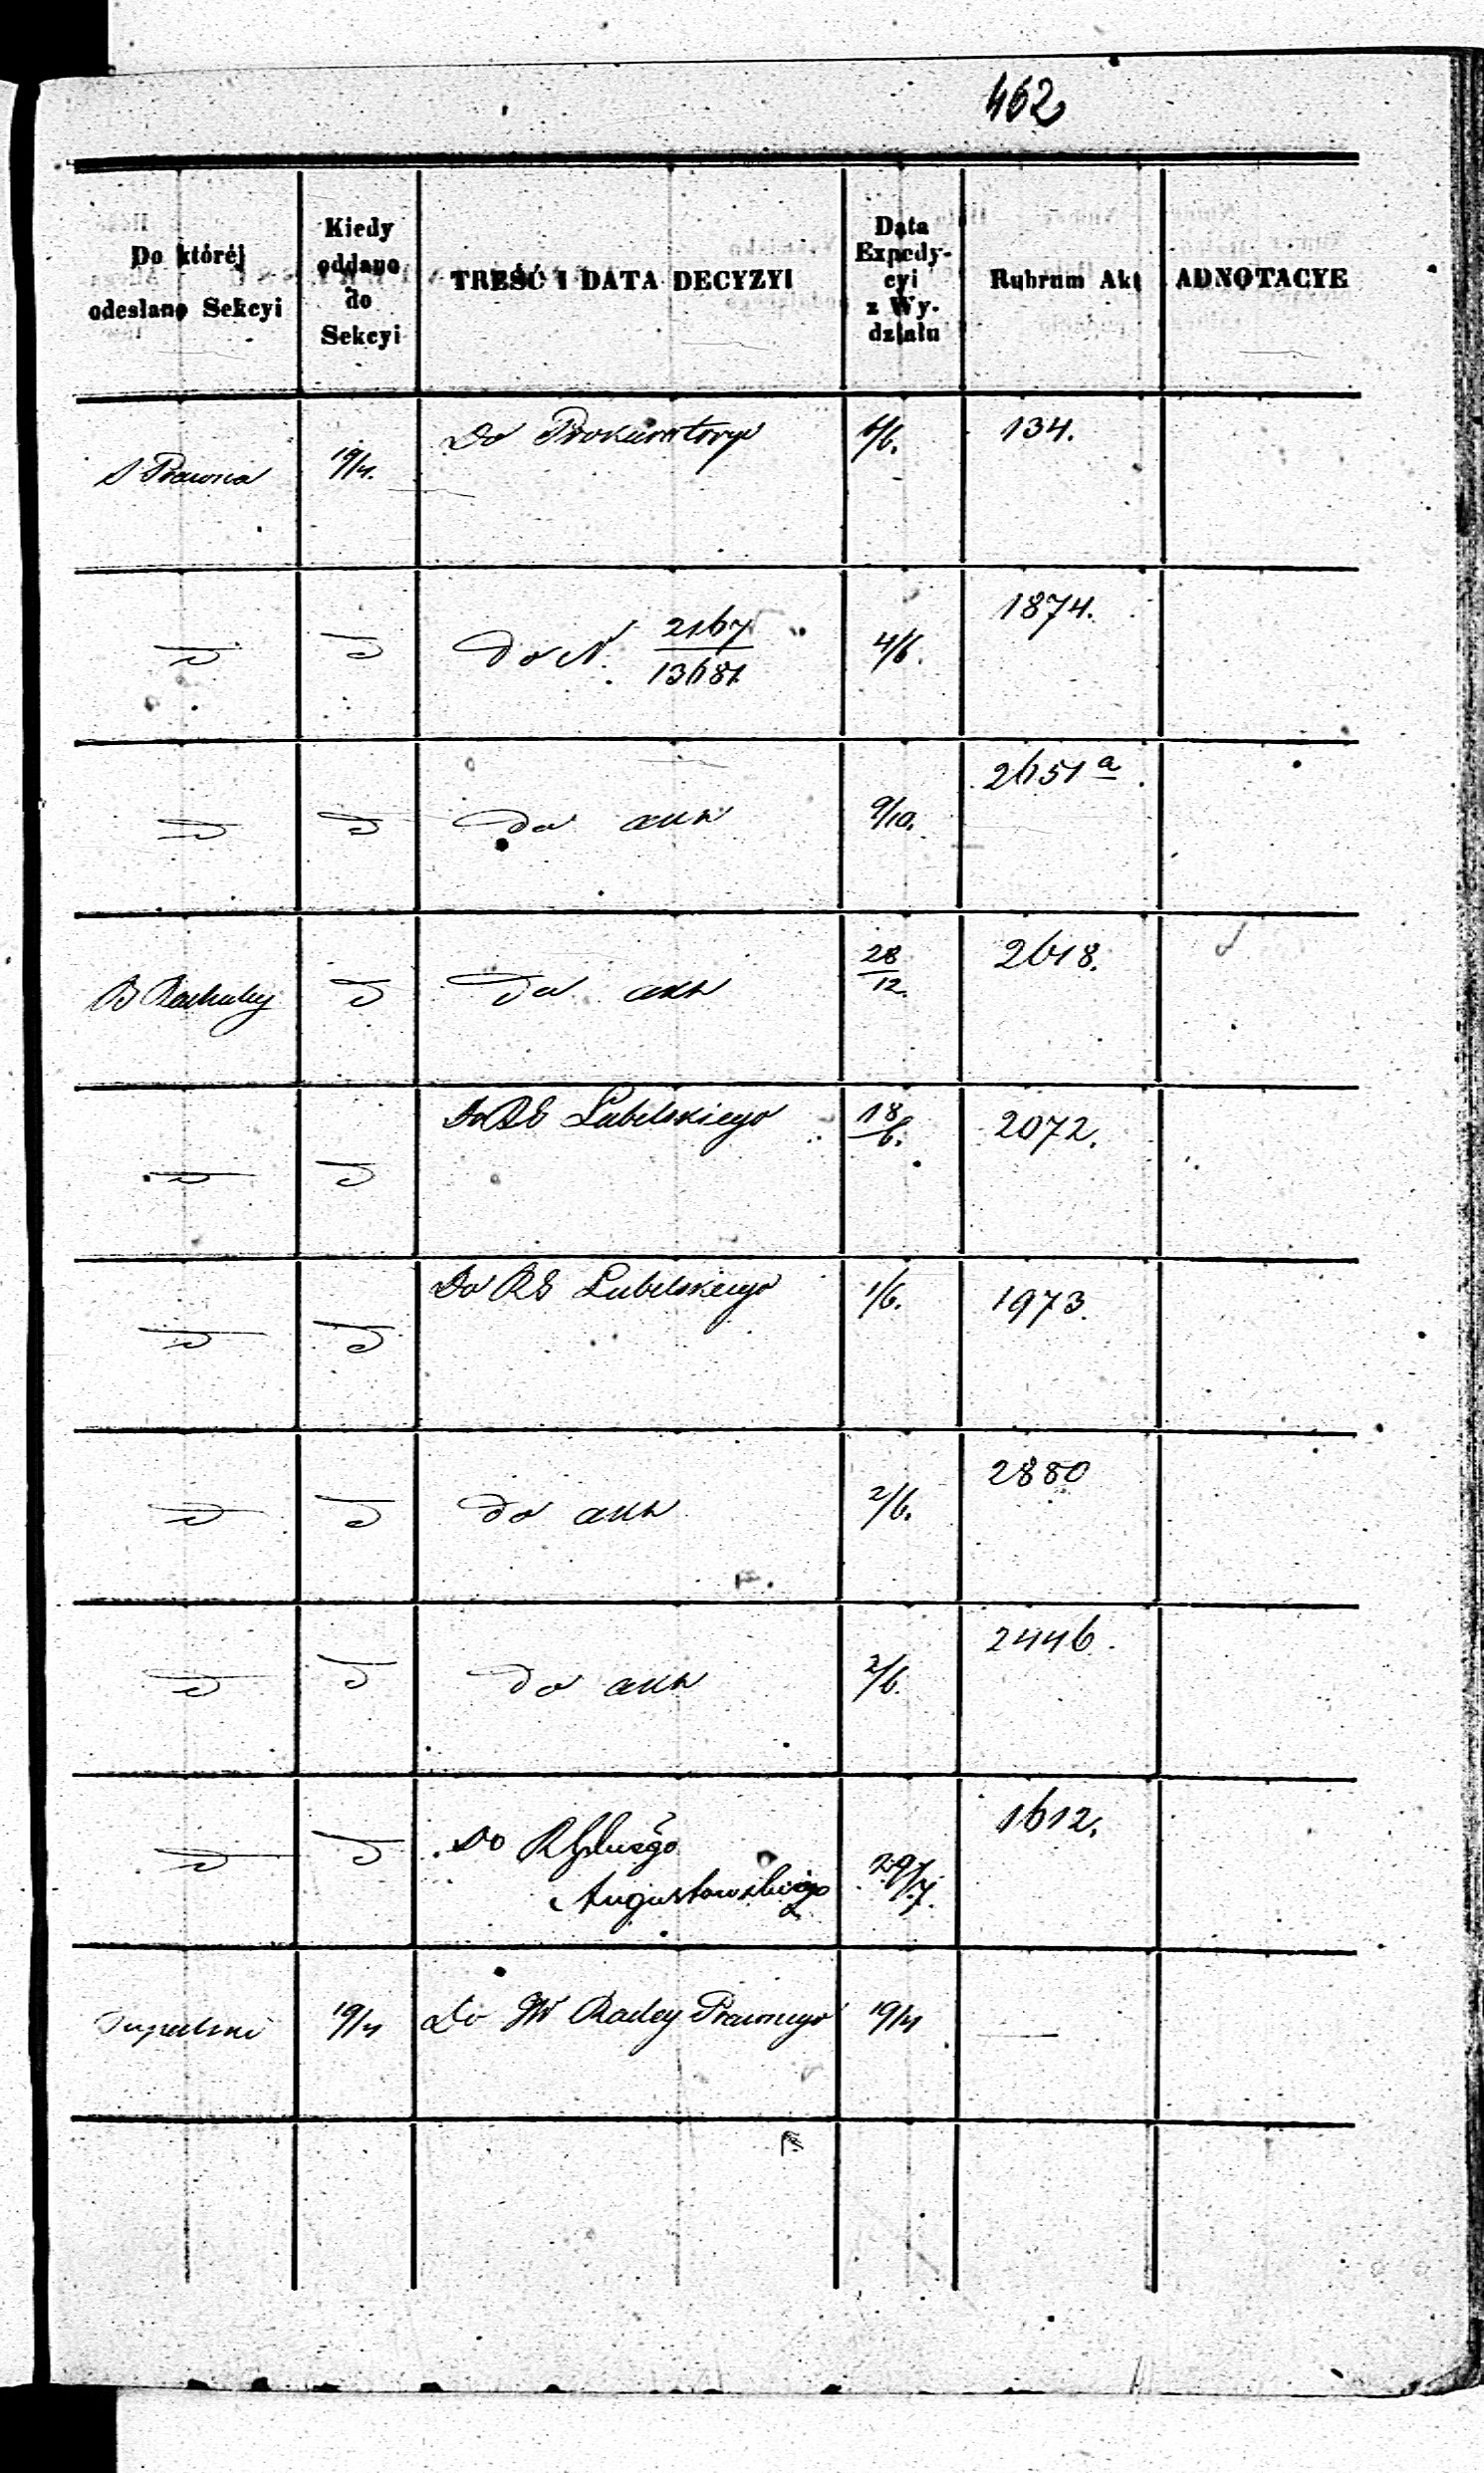 462
Do któréj odesłano Sekcyi | Kiedy oddano do Sekcyi | TREŚĆ I DATA DECYZYI | Data Expedycyi z Wydziału | Rubrum Akt | ADNOTACYE
S Prawna | 19/4. | Do Prokuratoryi | 4/6. | 134.
d | d | Do N. 2167/13681 | 4/6. | 1874.
d | d | Do akt | 9/10. | 2651 a
B Rachuby | d | Do akt | 28/12. | 2618.
d | d | Do RG Lubelskiego | 18/6. | 2072.
d | d | Do RG Lubelskiego | 1/6. | 1973.
d | d | do akt | 2/6. | 2880
d | d | Do akt | 2/6. | 2446.
d | d | Do Augustowskiego | 29/7. | 1612.
19/4 | Do JW Radcy Prawnego | 19/4 | —